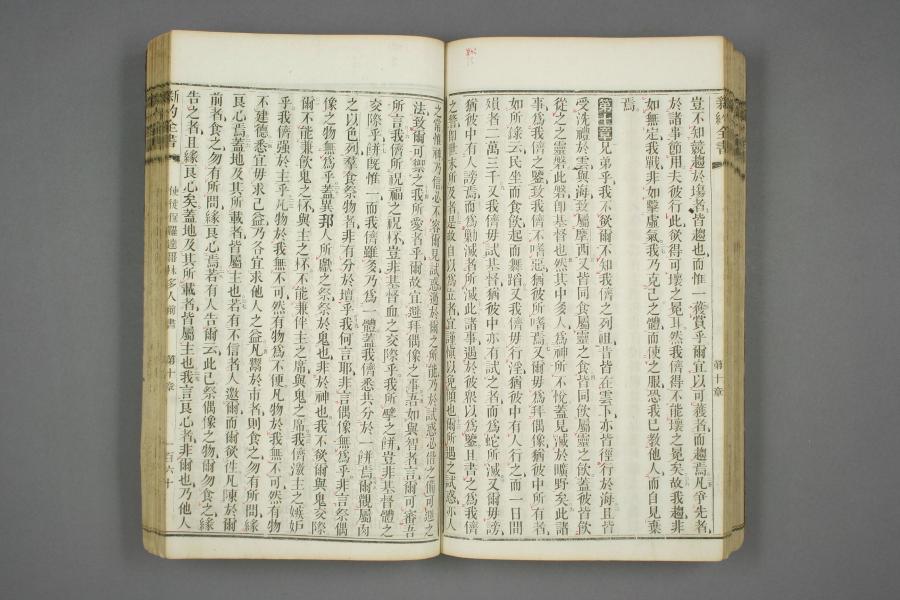 新約全書 第十章
豈不知競趨於塲者皆趨也而惟一獲賞乎爾宜以可獲者而趨焉凡爭先者
於諸事節用夫彼行此欲得可壞之冕耳然我儕得不能壞之冕矣故我趨非
如無定我戰非如擊虛氣我乃克己之體而使之服恐我已敎他人而自見棄
焉
第十章兄弟乎我不欲爾不知我儕之列祖皆在雲下亦皆徑行於海且皆
受洗禮於雲與海致屬摩西又皆同食屬靈之食皆同飲屬靈之飲蓋彼皆飲
從之之靈磐此磐卽基督也然其中多人爲神所不悅蓋見滅於曠野矣此諸
事爲我儕之鑒致我儕不嗜惡猶彼所嗜焉又爾毋爲拜偶像猶彼中所有者
如所錄云民坐而食飲起而舞蹈又我儕毋行淫猶彼中有人行之而一日間
殞者二萬三千又我儕毋試基督猶彼中亦有試之者而爲蛇所滅又爾毋謗
猶彼中有人謗焉而爲勦滅者所滅此諸事遇於彼衆以爲鑒且書之爲我儕
之警卽世末所及者是故自以爲立者宜謹愼以免傾也爾所遇之試惑亦人
之常惟神乃信必不容爾見試惑過於爾之所能乃於試惑必借之備可避之
法致爾可禦之我所愛者乎爾故宜避拜偶像之事吾如與智者言爾可審吾
所言我儕所祝福之祝杯豈非基督血之交際乎我所擘之餅豈非基督體之
交際乎餅旣惟一而我儕雖多乃爲一體蓋我儕悉共分於一餅焉爾觀屬肉
之以色列羣食祭物者非有分於壇乎我何言耶非言偶像無爲乎非言祭偶
像之物無爲乎蓋異邦人所獻之祭祭於鬼也非於神也我不欲爾與鬼交際
爾不能兼飲鬼之杯與主之杯不能兼伴主之席與鬼之席我儕激主之嫉妒
乎我儕强於主乎凡物於我無不可然有物爲不便凡物於我無不可然有物
不建德悉宜毋求己益乃各宜求他人之益凡鬻於市者則食之勿有所問緣
良心焉蓋地及其所載者皆屬主也若有不信者人邀爾而爾欲徃凡陳於爾
前者食之勿有所問緣良心焉若有人告爾云此已祭偶像之物爾勿食之緣
告之者且緣良心矣蓋地及其所載者皆屬主也我言良心者非爾也乃他人
新約全書 使徒保羅達哥林多人前書 第十章 一百六十